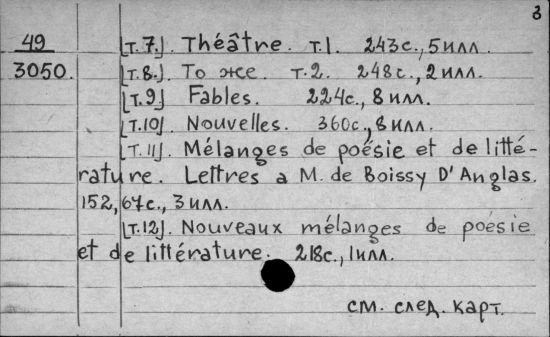 3
49 [т.7]. Théâtre. т.1. 243с., 5илл.
3050. [т.8.]. То же. т.2. 248с., 2илл.
[т.9] Fables. 224с., 8илл.
[т.10]. Nouvelles. 360с., 8илл.
[т.11]. Mélanges de poésie et de litté-
rature. Lettres a M. de Boissy D'Anglas.
152, 67с., 3илл.
[т.12]. Nouveaux mélanges de poésie
et de littérature. 218с., 1илл.
см. след. карт.